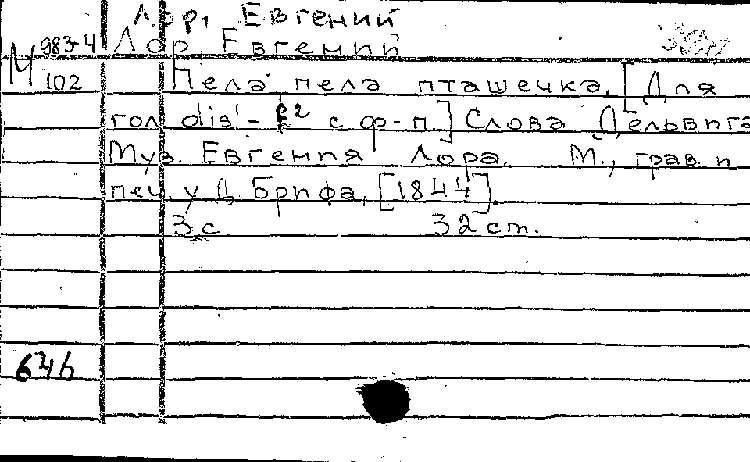 Лор, Евгений
М 983-4 Лор Евгений
102 Пела пела пташечка. [Для
гол. dis'- f² с ф-п.] Слова Дельвига
Муз. Евгения Лора. М., грав. и
печ. у Д. Брифа, [1844].
3 с. 32 ст.